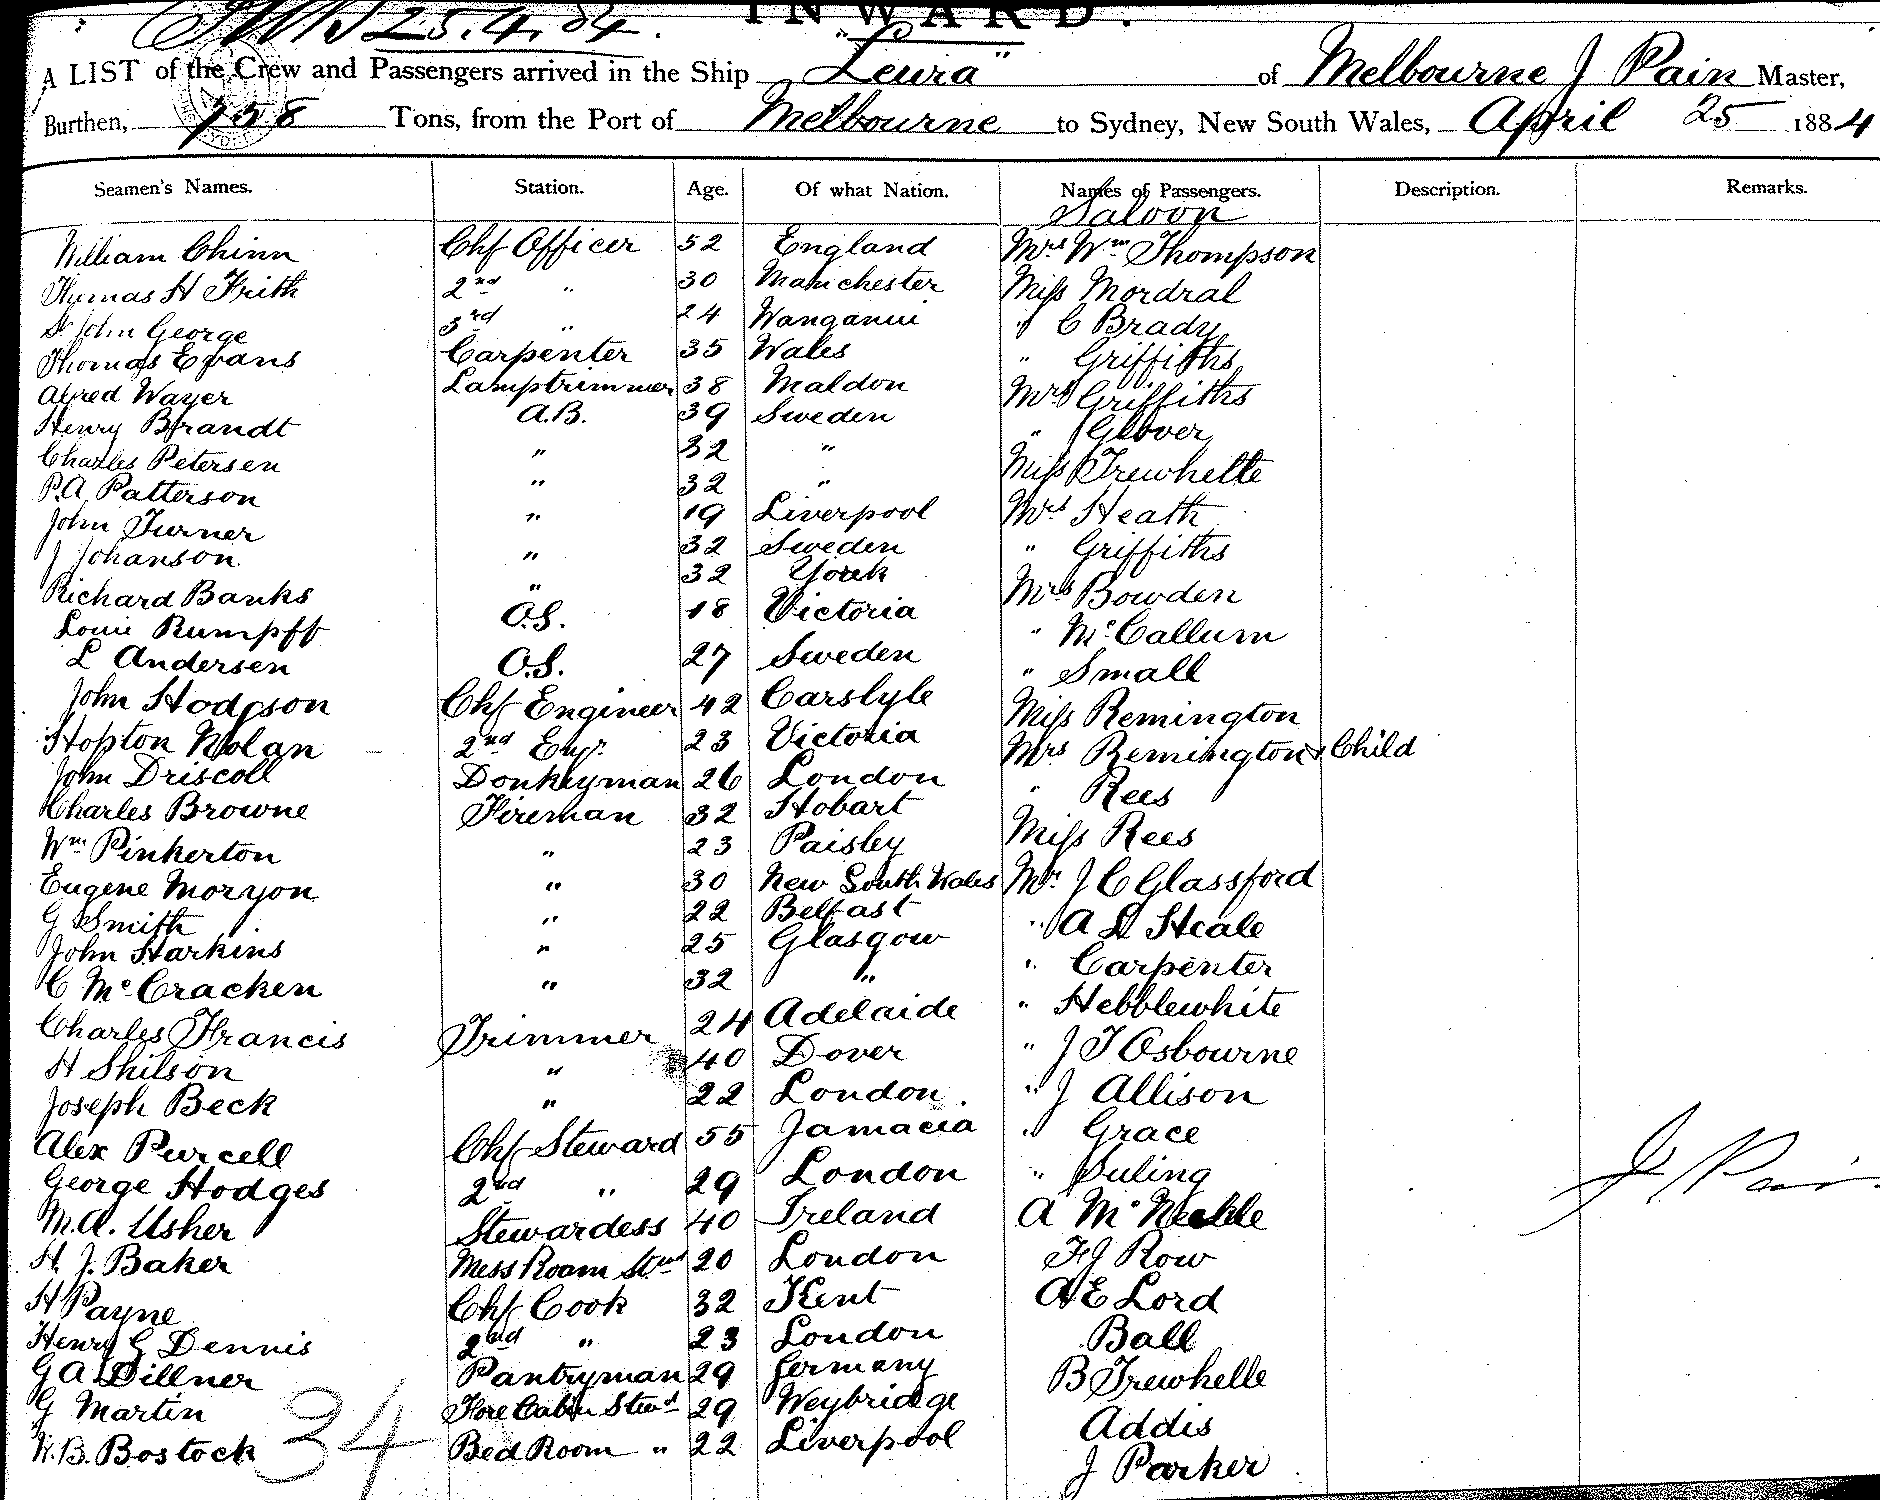 25.4.84. INWARD.
A LIST of the Crew and Passengers arrived in the Ship "Leura" of Melbourne J Pain Master,
Burthen, 758 Tons, from the Port of Melbourne to Sydney, New South Wales, April 25 1884
Seamen's Names. Station. Age. Of what Nation. Names of Passengers. Description. Remarks.
Saloon
William Chinn Chf Officer 52 England Mrs Wm Thompson
Thomas H Frith 2nd " 30 Manchester Miss Mordral
St John George 3rd " 24 Wanganui " C Brady
Thomas Evans Carpenter 35 Wales " Griffiths
Alfred Wayer Lamptrimmer 38 Maldon Mrs Griffiths
Henry Brandt A.B. 39 Sweden " Glover
Charles Petersen " 32 " Miss Trewhelle
P.A. Patterson " 32 " Mrs Heath
John Turner " 19 Liverpool " Griffiths
J Johanson " 32 Sweden Mrs Bowden
Richard Banks " 32 York " McCallum
Louie Rumpff O.S. 18 Victoria " Small
L Andersen O.S. 27 Sweden Miss Remington
John Hodgson Chf Engineer 42 Carslyle Mrs Remington & Child
Hopton Nolan 2nd Engr. 23 Victoria " Rees
John Driscoll Donkeyman 26 London Miss Rees
Charles Browne Fireman 32 Hobart Mr. J C Glassford
Wm Pinkerton " 23 Paisley " A L Heale
Eugene Moryon " 30 New South Wales " Carpenter
G Smith " 22 Belfast " Hebblewhite
John Harkins " 25 Glasgow " J T Osbourne
C McCracken " 32 " " J Allison
Charles Francis Trimmer 24 Adelaide " Grace
H Shilson " 40 Dover " Suling
Joseph Beck " 22 London. A Mc
Alex Purcell Chf Steward 55 Jamacia F J Row
George Hodges 2nd " 29 London A E Lord
M.A. Usher Stewardess 40 Ireland Ball
H. J. Baker Mess Room Stwd 20 London B Trewhelle
H Payne Chf Cook 32 Kent Addis
Henry G Dennis 2nd " 23 London J Parker
G A Dillner Pantryman 29 Germany
G Martin Fore Cabin Stewd 29 Weybridge
W.B. Bostock Bed Room " 22 Liverpool
34
J. Pain